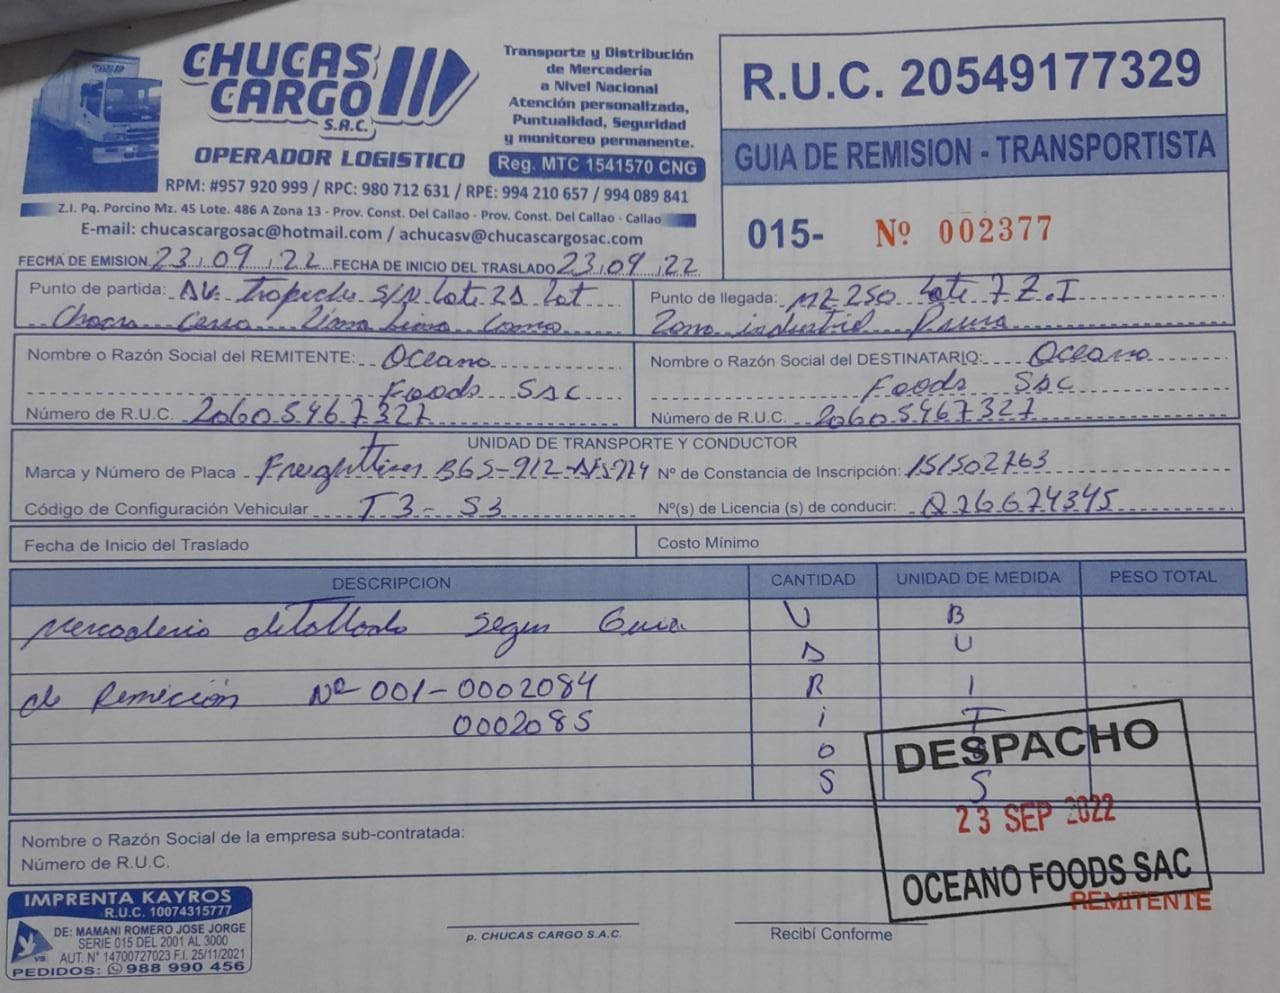 CHUCAS CARGO S.A.C.
OPERADOR LOGISTICO
Transporte y Distribución
de Mercadería
a Nivel Nacional
Atención personalizada,
Puntualidad, Seguridad
y monitoreo permanente.
Reg. MTC 1541570 CNG
RPM: #957 920 999 / RPC: 980 712 631 / RPE: 994 210 657 / 994 089 841
Z.I. Pq. Porcino Mz. 45 Lote. 486 A Zona 13 - Prov. Const. Del Callao - Prov. Const. Del Callao - Callao
E-mail: chucascargosac@hotmail.com / achucasv@chucascargosac.com
R.U.C. 20549177329
GUIA DE REMISION - TRANSPORTISTA
015- Nº 002377
FECHA DE EMISION 23.09.22 FECHA DE INICIO DEL TRASLADO 23.09.22
Punto de partida: Av. Trapiche S/N Lote 2A Lot
Chacra Cerro Lima Lima Comas
Punto de llegada: MZ 250 Lote 7 Z.I
Zona industrial Paura
Nombre o Razón Social del REMITENTE: Oceano
Foods SAC
Número de R.U.C. 20605467327
Nombre o Razón Social del DESTINATARIO: Oceano
Foods SAC
Número de R.U.C. 20605467327
UNIDAD DE TRANSPORTE Y CONDUCTOR
Marca y Número de Placa B6S-912- Nº de Constancia de Inscripción: 151502763
Código de Configuración Vehicular T3-S3 Nº(s) de Licencia (s) de conducir: Q26674345
Fecha de Inicio del Traslado Costo Mínimo
DESCRIPCION CANTIDAD UNIDAD DE MEDIDA PESO TOTAL
Mercaderia detallada Segun Guia U B
A U
de Remición Nº 001-0002084 R I
0002085 i T
o
S S
DESPACHO
23 SEP 2022
OCEANO FOODS SAC
Nombre o Razón Social de la empresa sub-contratada:
Número de R.U.C.
REMITENTE
IMPRENTA KAYROS
R.U.C. 10074315777
DE: MAMANI ROMERO JOSE JORGE
SERIE 015 DEL 2001 AL 3000
AUT. N° 14700727023 F.I. 25/11/2021
PEDIDOS: 988 990 456
p. CHUCAS CARGO S.A.C.
Recibí Conforme